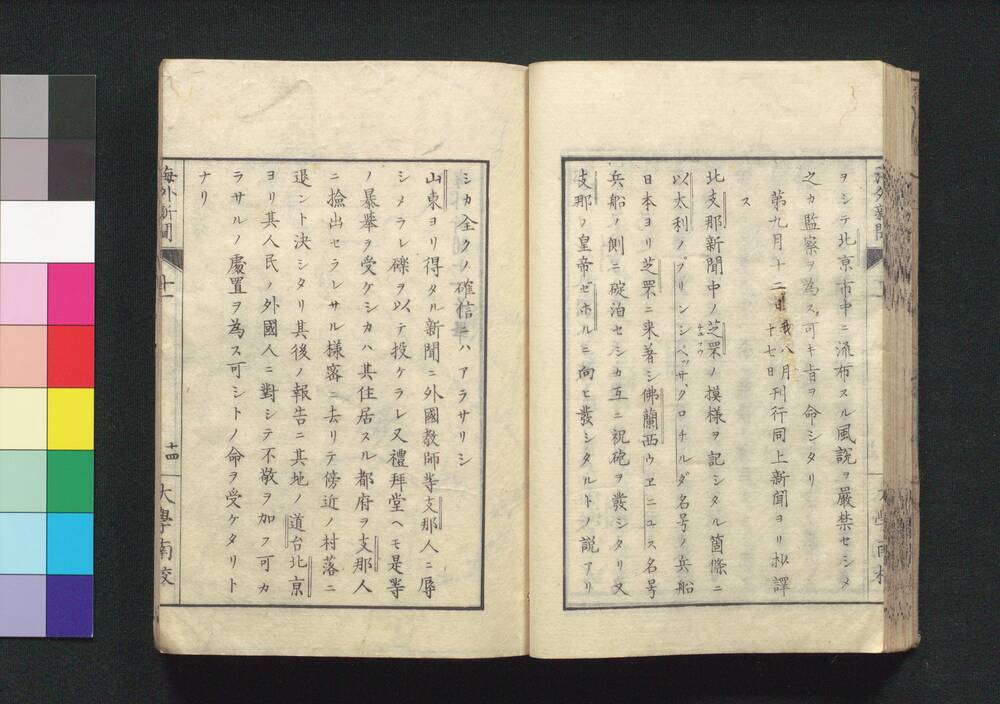 ヲシテ北京市中ニ流布スル風説ヲ嚴禁セシメ
之カ監察ヲ為ス可キ旨ヲ命シタリ
第九月十二日我八月十七日刊行同上新聞ヨリ抄譯
ス
北支那新聞中ノ芝罘ノ模様ヲ記シタル箇條ニ
チーフウ
以太利ノプリンシペッサ、クロチルダ名号ノ兵船
日本ヨリ芝罘ニ来著シ佛蘭西ウヱニュス名号
兵船ノ側ニ碇泊セシカ互ニ祝砲ヲ發シタリ又
支那ノ皇帝ゼホルニ向ヒ發シタルトノ説アリ
シカ全クノ確信ニハアラサリシ
山東ヨリ得タル新聞ニ外國教師等支那人ニ辱
シメラレ礫ヲ以テ投ケラレ又禮拜堂ヘモ是等
ノ暴挙ヲ受ケシカハ其住居スル都府ヲ支那人
ニ撿出セラレサル様密ニ去リテ傍近ノ村落ニ
退ント決シタリ其後ノ報告ニ其地ノ道台北京
ヨリ其人民ノ外國人ニ對シテ不敬ヲ加フ可カ
ラサルノ處置ヲ為ス可シトノ命ヲ受ケタリト
ナリ
海外新聞
十一
十四
大學南校